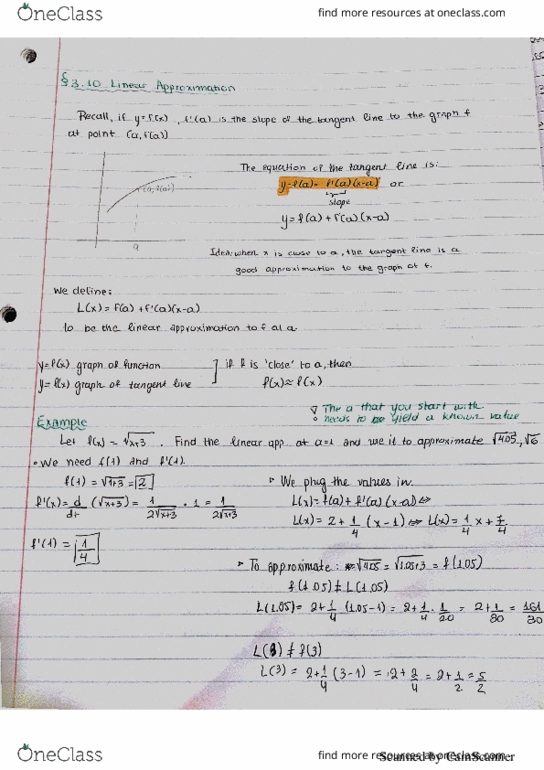 OneClass
find more resources at oneclass.com
§3.10 Linear Approximation
Recall, if y=f(x), f'(a) is the slope of the tangent line to the graph f
at point (a, f(a))
(a, f(a))
a
The equation of the tangent line is:
y-f(a)= f'(a)(x-a) or
slope
y= f(a) + f'(a)(x-a)
Idea: when x is close to a, the tangent line is a
good approximation to the graph of f.
We define:
L(x) = f(a) + f'(a)(x-a)
to be the linear approximation to f at a
y=f(x) graph of function
y= l(x) graph of tangent line
if is 'close' to a, then
f(x)≈ l(x)
The a that you start with
needs to be yield a known value
Example
Let f(x) = √x+3. Find the linear app. at a=1 and use it to approximate √4.05, √6
• We need f(1) and f'(1).
f(1) = √1+3 = 2
f'(x) = d/dx (√x+3) = 1/2√x+3 · 1 = 1/2√x+3
f'(1) = 1/4
► We plug the values in.
L(x) = f(a) + f'(a)(x-a) ⇔
L(x) = 2 + 1/4 (x-1) ⇔ L(x) = 1/4 x + 7/4
► To approximate: √4.05 = √1.05+3 = f(1.05)
f(1.05) ≠ L(1.05)
L(1.05) = 2 + 1/4 (1.05-1) = 2 + 1/4 · 1/20 = 2 + 1/80 = 161/80
L(3) ≠ f(3)
L(3) = 2 + 1/4 (3-1) = 2 + 2/4 = 2 + 1/2 = 5/2
OneClass
find more resources at oneclass.com
Scanned by CamScanner